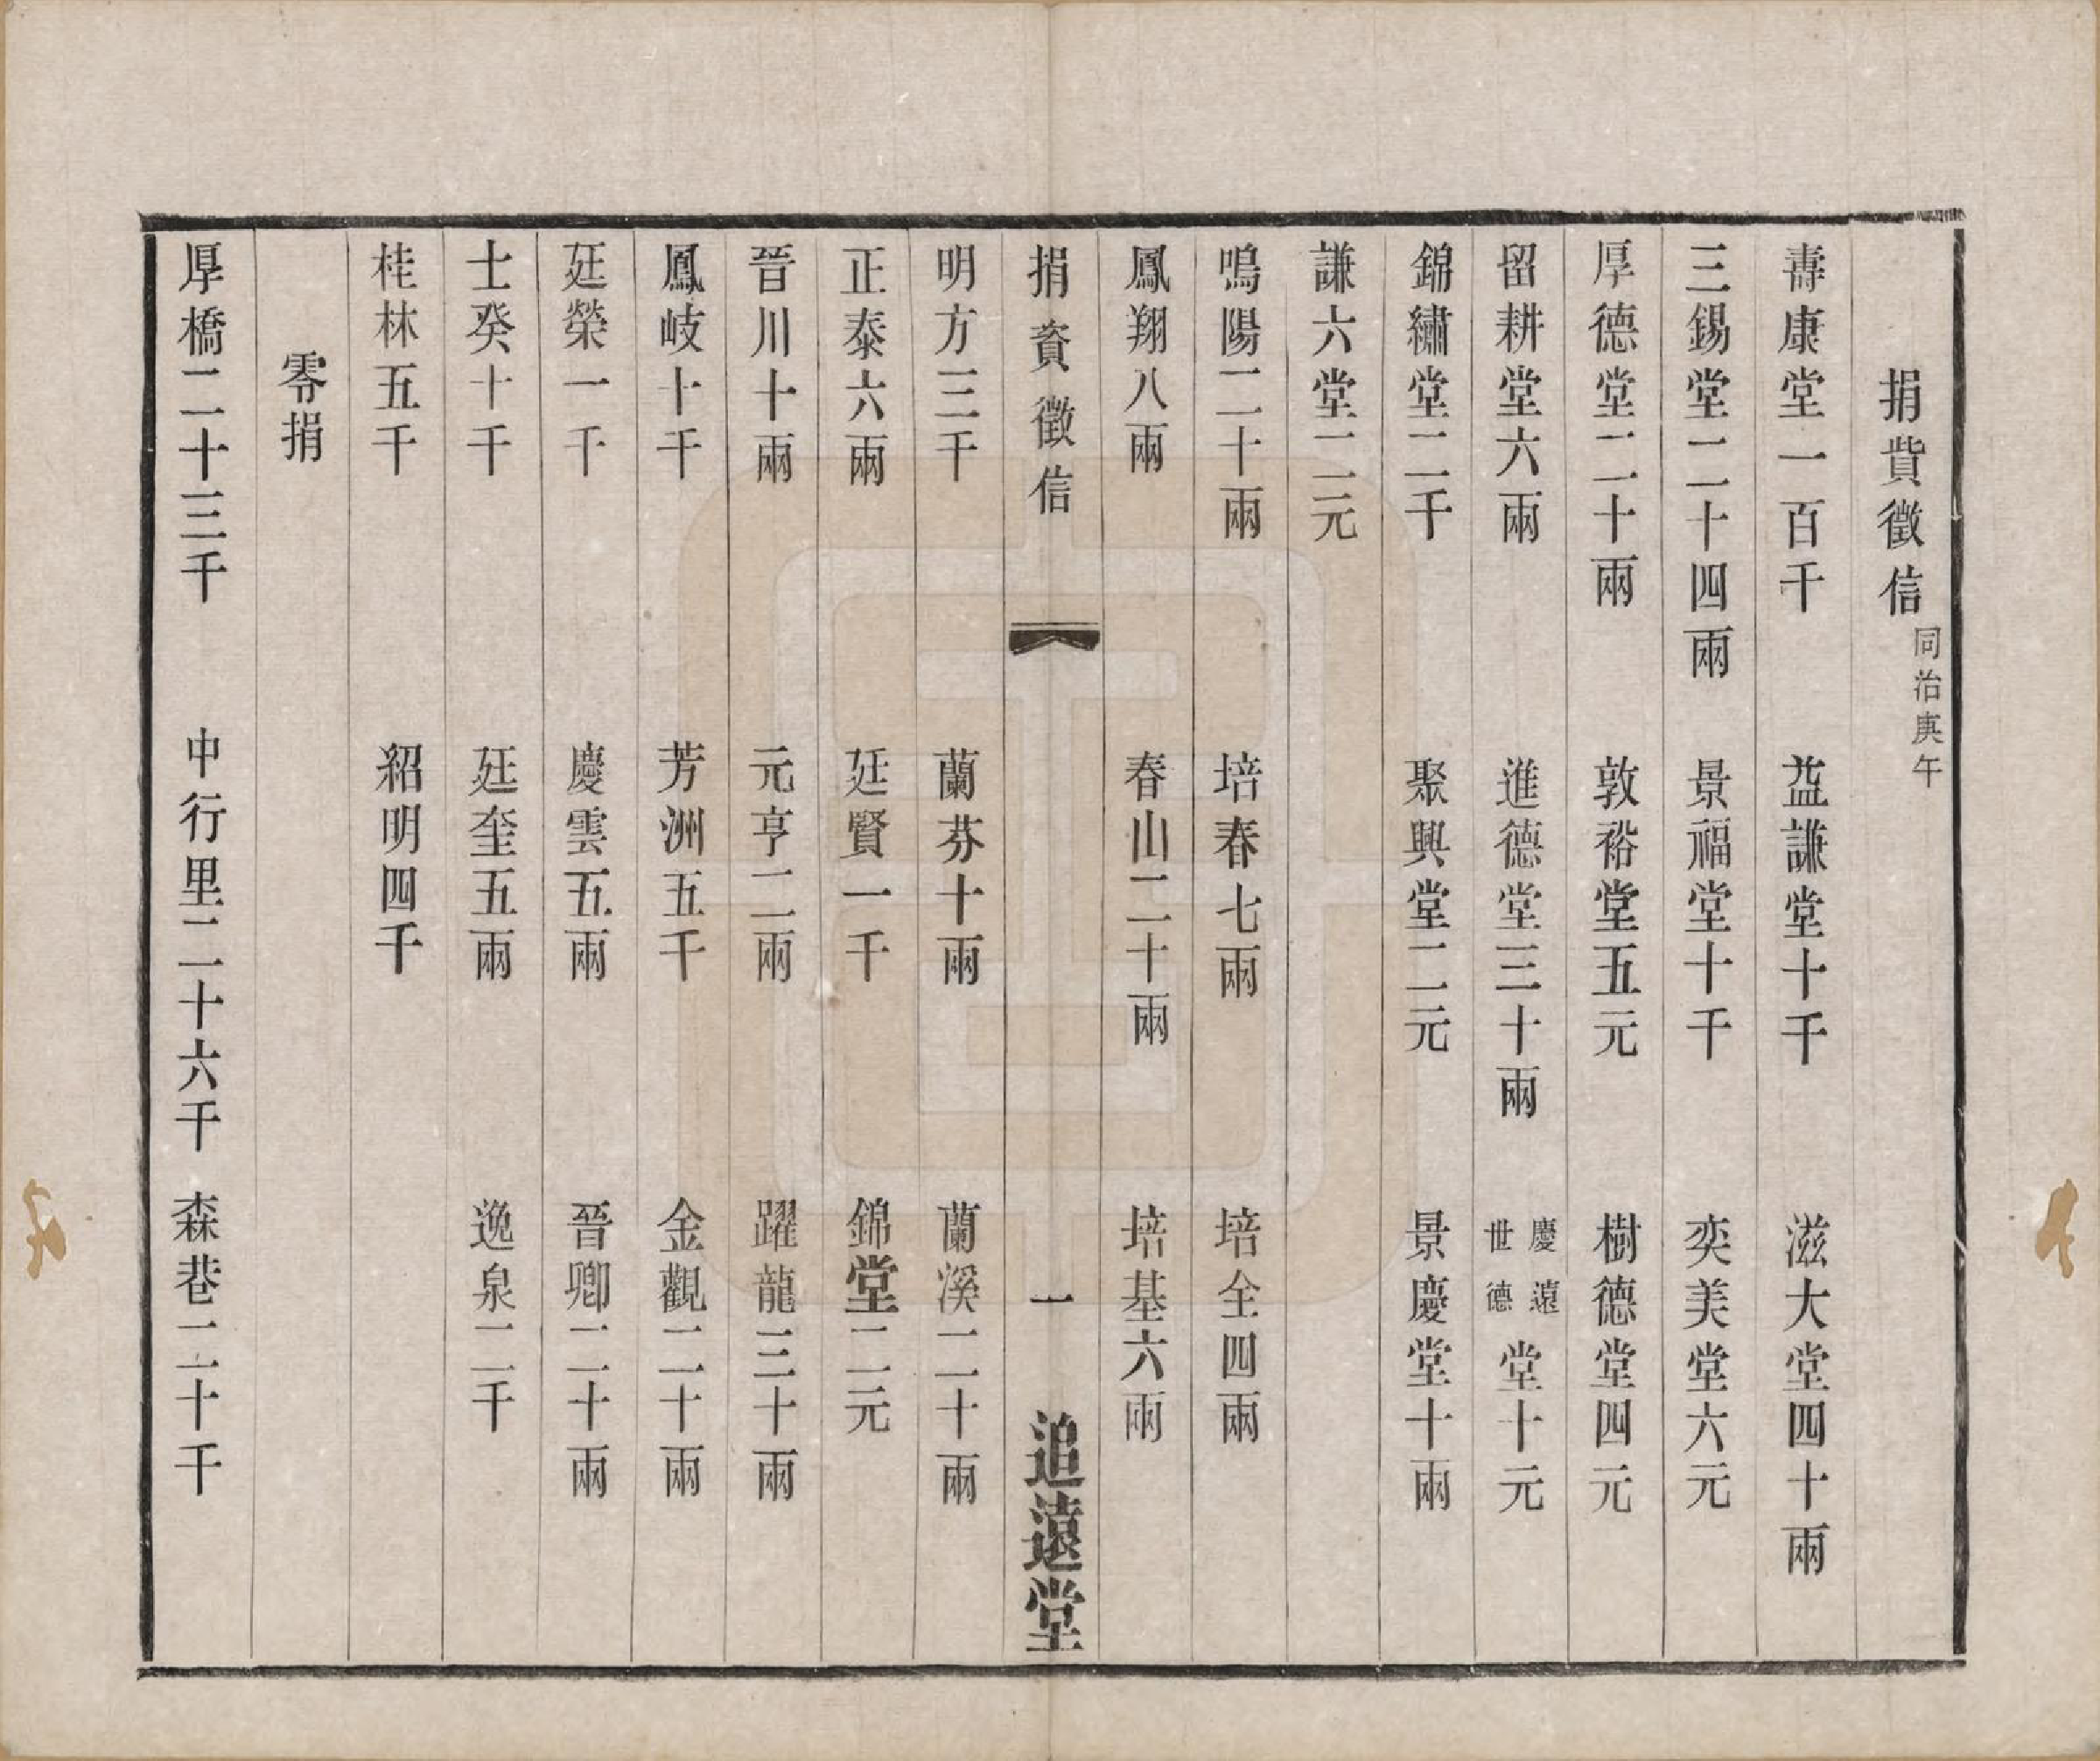 捐貲徵信同治庚午
壽康堂一百千　益謙堂十千　滋大堂四十兩
三錫堂二十四兩　景福堂十千　奕美堂六元
厚德堂二十兩　敦裕堂五元　樹德堂四元
留耕堂六兩　進德堂三十兩　慶遠世德堂十元
錦繡堂二千　聚興堂二元　景慶堂十兩
謙六堂二元
鳴陽二十兩　培春七兩　培全四兩
鳳翔八兩　春山二十兩　培基六兩
捐資徵信　一　追遠堂
明方三千　蘭芬十兩　蘭溪二十兩
正泰六兩　廷賢一千　錦堂二元
晉川十兩　元亨二兩　躍龍三十兩
鳳岐十千　芳洲五千　金觀二十兩
廷榮一千　慶雲五兩　晉卿二十兩
士癸十千　廷奎五兩　逸泉二千
桂林五千　紹明四千
零捐
厚橋二十三千　中行里二十六千　森巷二十千